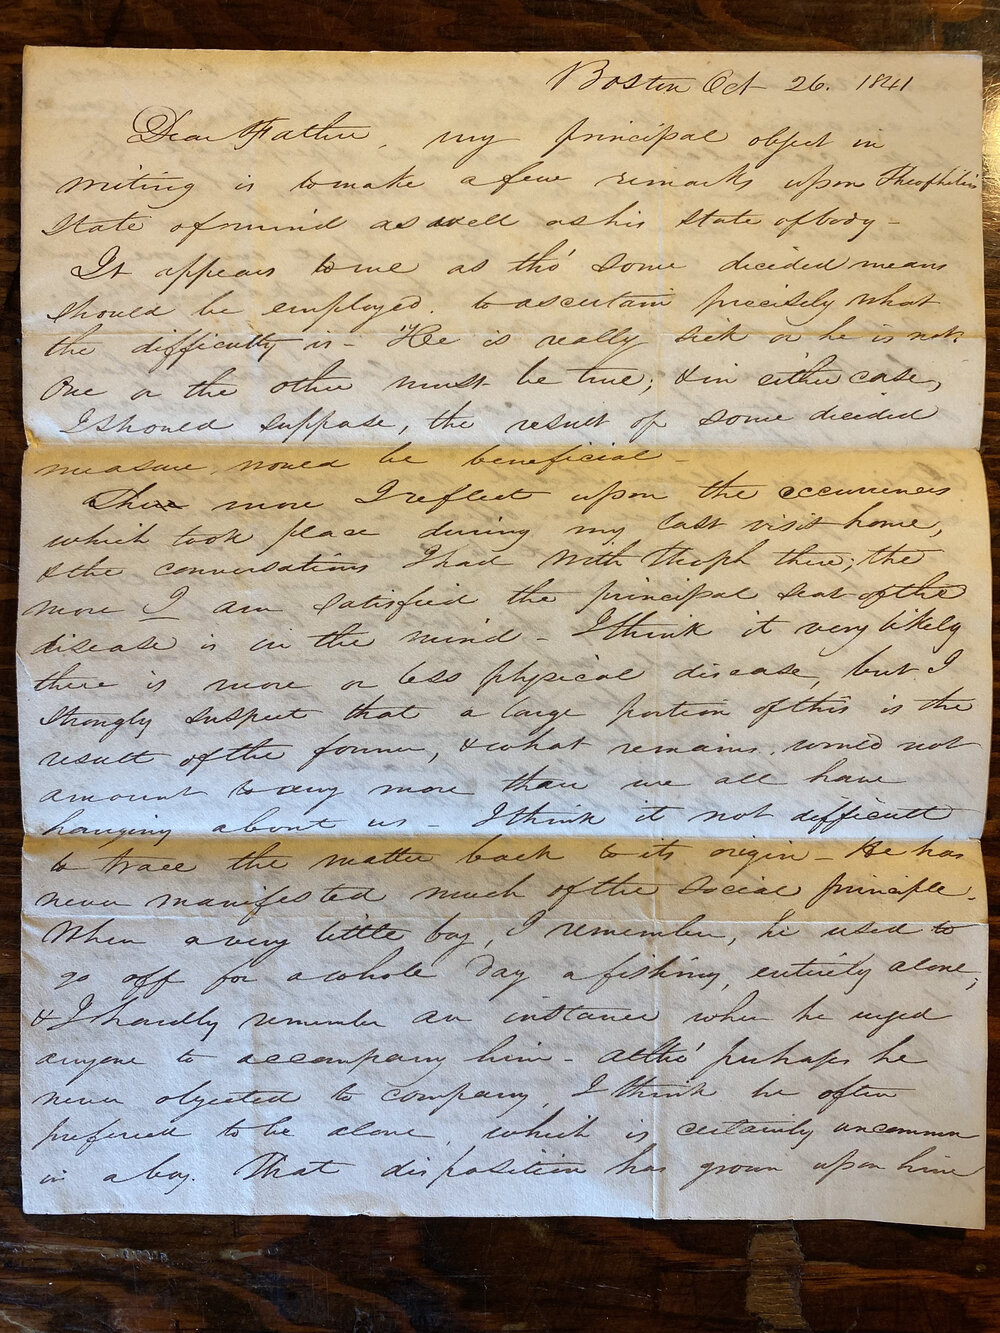 Boston Oct 26. 1841
Dear Father, my principal object in
writing is to make a few remarks upon Theophilus
state of mind as well as his state of body –
It appears to me as tho' some decided means
should be employed. to ascertain precisely what
the difficulty is – He is really sick or he is not.
One or the other must be true; & in either case,
I should suppose, the result of some decided
measure would be beneficial –
The more I reflect upon the occurrences
which took place during my last visit home,
& the conversations I had with Theoph there; the
more I am satisfied the principal seat of the
disease is in the mind – I think it very likely
there is more or less physical disease, but I
strongly suspect that a large portion of this is the
result of the former, & what remains, would not
amount to very more than we all have
hanging about us – I think it not difficult
to trace the matter back to its origin – He has
never manifested much of the social principle.
When a very little boy, I remember, he used to
go off for a whole day a fishing, entirely alone;
& I hardly remember an instance when he urged
anyone to accompany him – Altho' perhaps he
never objected to company, I think he often
preferred to be alone, which is certainly uncommon
in a boy. That disposition has grown upon him